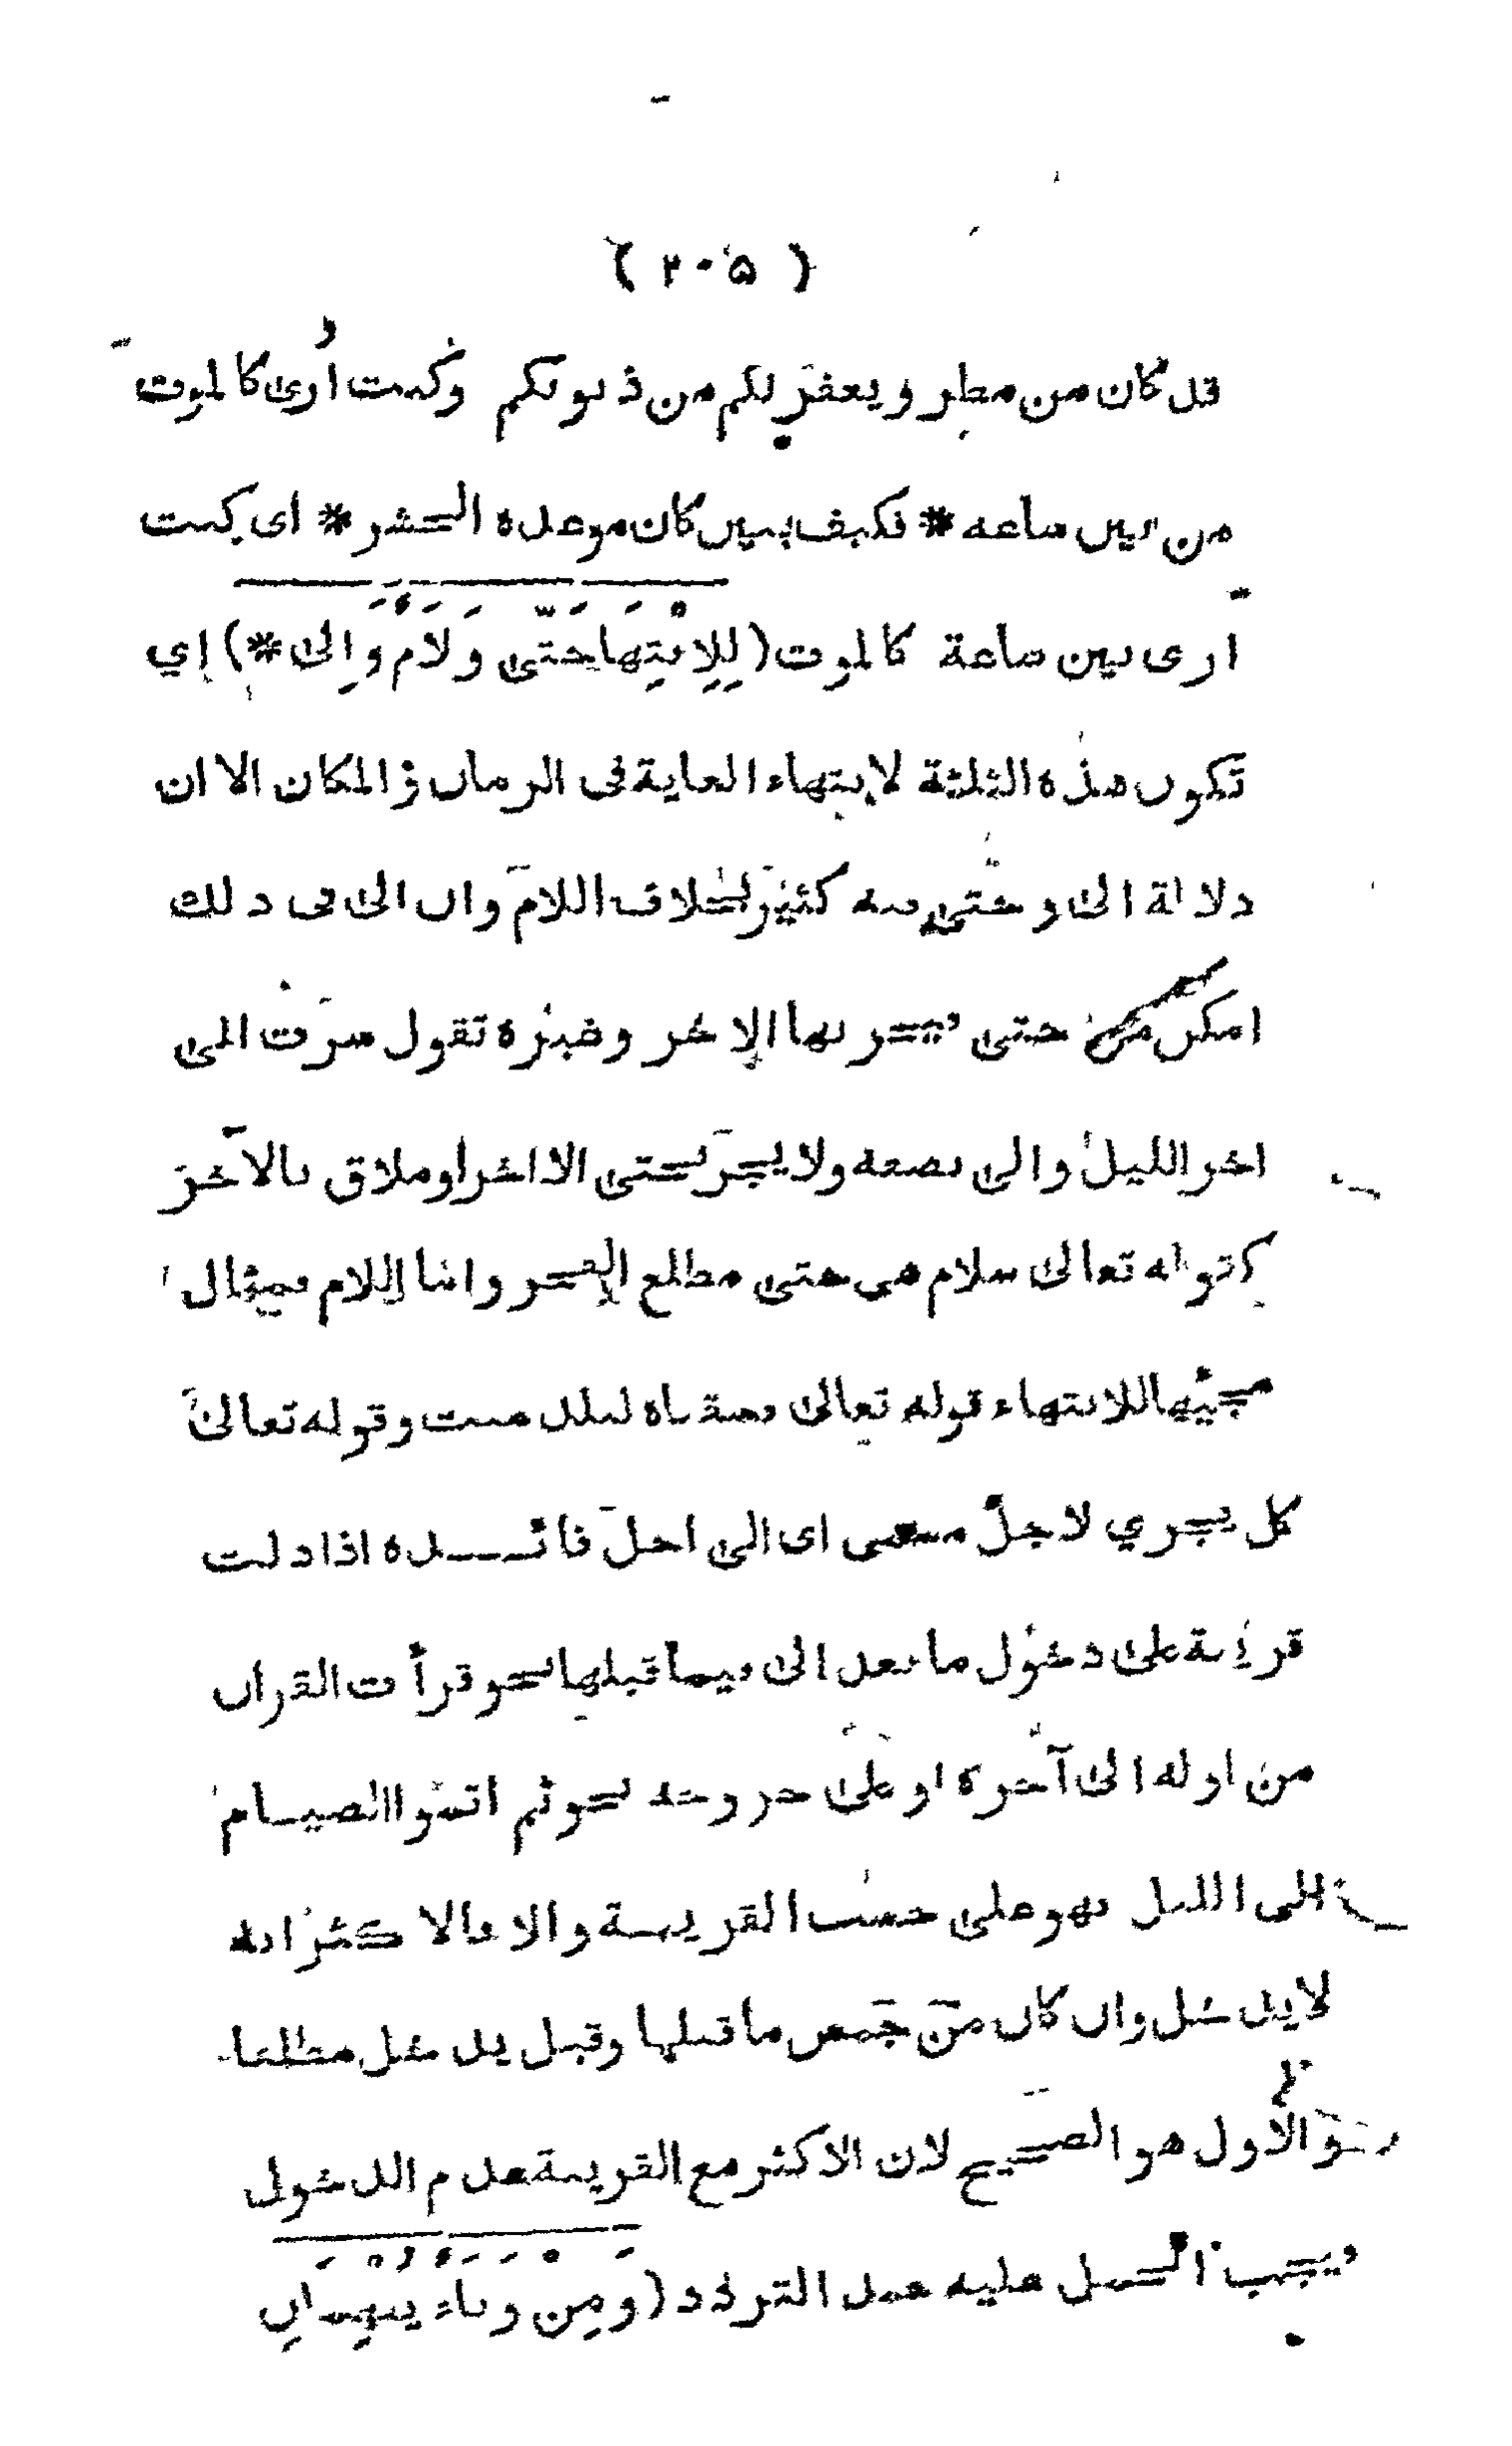 ( ٢٠۵ )
قد كان من مطر ويغفر لكم من ذنوبكم وكنت أرى كالموت
من بين ساعة * فكيف ببين كان موعده الحشر * اى كنت
ارى بين ساعة كالموت (لِلِانْتِهَا حَتَّى وَلَامٌ وَإِلى *) إي
تكون هذه الثلثة لانتهاء الغاية فى الزمان و المكان الا ان
دلالة الى و حتى عليه كثير بخلاف اللام وان الى فى ذلك
امكن من حتى فيجر بها الاخر وغيره تقول سرت الى
اخر الليل والى نصفه ولا يجر بحتى الا اخر او ملاق بالآخر
كقوله تعالى سلام هى حتى مطلع الفجر واما اللام فمثال
مجيئها للانتهاء قوله تعالى سقناه لبلد ميت وقوله تعالى
كل يجري لاجل مسمى اى الى اجل فائـــدة اذا دلت
قرينة على دخول ما بعد الى فيما قبلها نحو قرأت القران
من اوله الى آخره او على خروجه نحو ثم اتموا الصيام
الى الليل فهو على حسب القرينة والا فالا كثر انه
لا يدخل وان كان من جنس ما قبلها وقيل يدخل مطلقا
والاول هو الصحيح لان الاكثر مع القرينة عدم الدخول
ويجب الحمل عليه عند التردد (وَمِنْ وَبَاءٌ يُفْهِمَانِ